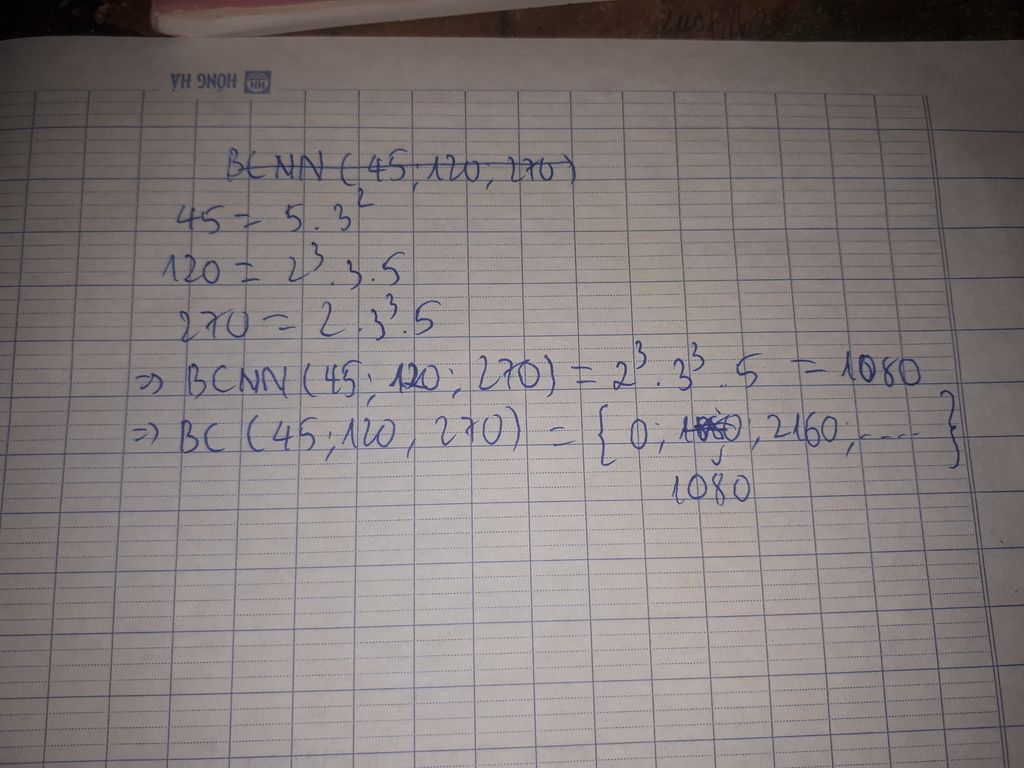 HỒNG HÀ
BCNN (45; 120; 270)
45 = 5.3²
120 = 2³.3.5
270 = 2.3³.5
=> BCNN (45; 120; 270) = 2³.3³.5 = 1080
=> BC (45; 120, 270) = { 0; 1080; 2160; .... }